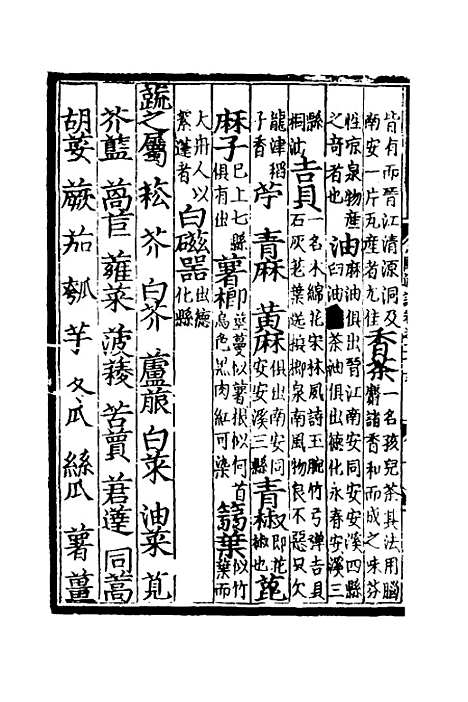 皆有而晉江清源洞及南安一片瓦產者尤佳 香茶 一名孩兒茶其法用腦麝諸香和而成之味芬
性涼泉物產之奇者也 油 麻油俱出晉江南安同安安溪四縣臼油 茶油俱出德化永春安溪三
縣桐油 吉貝 一名木綿花宋林夙詩玉腕竹弓彈吉貝石灰荖葉送檳榔泉南風物良不惡只欠
龍津稻子香 苧 青麻 黃麻 俱出南安同安安溪三縣 青椒 椒即花椒也 萞
麻子 巳上七縣俱有出 薯榔 莖蔓似薯根似何首烏色黑肉紅可染 篛葉 似竹葉而
大舟人以絮蓬者 白磁器 出德化縣
蔬之屬 菘 芥 白芥 蘆菔 白菜 油菜 莧
芥藍 萵苣 蕹菜 菠薐 苦蕒 莙薘 同蒿
胡荽 蕨 茄 瓠 芋 冬瓜 絲瓜 薯 薑